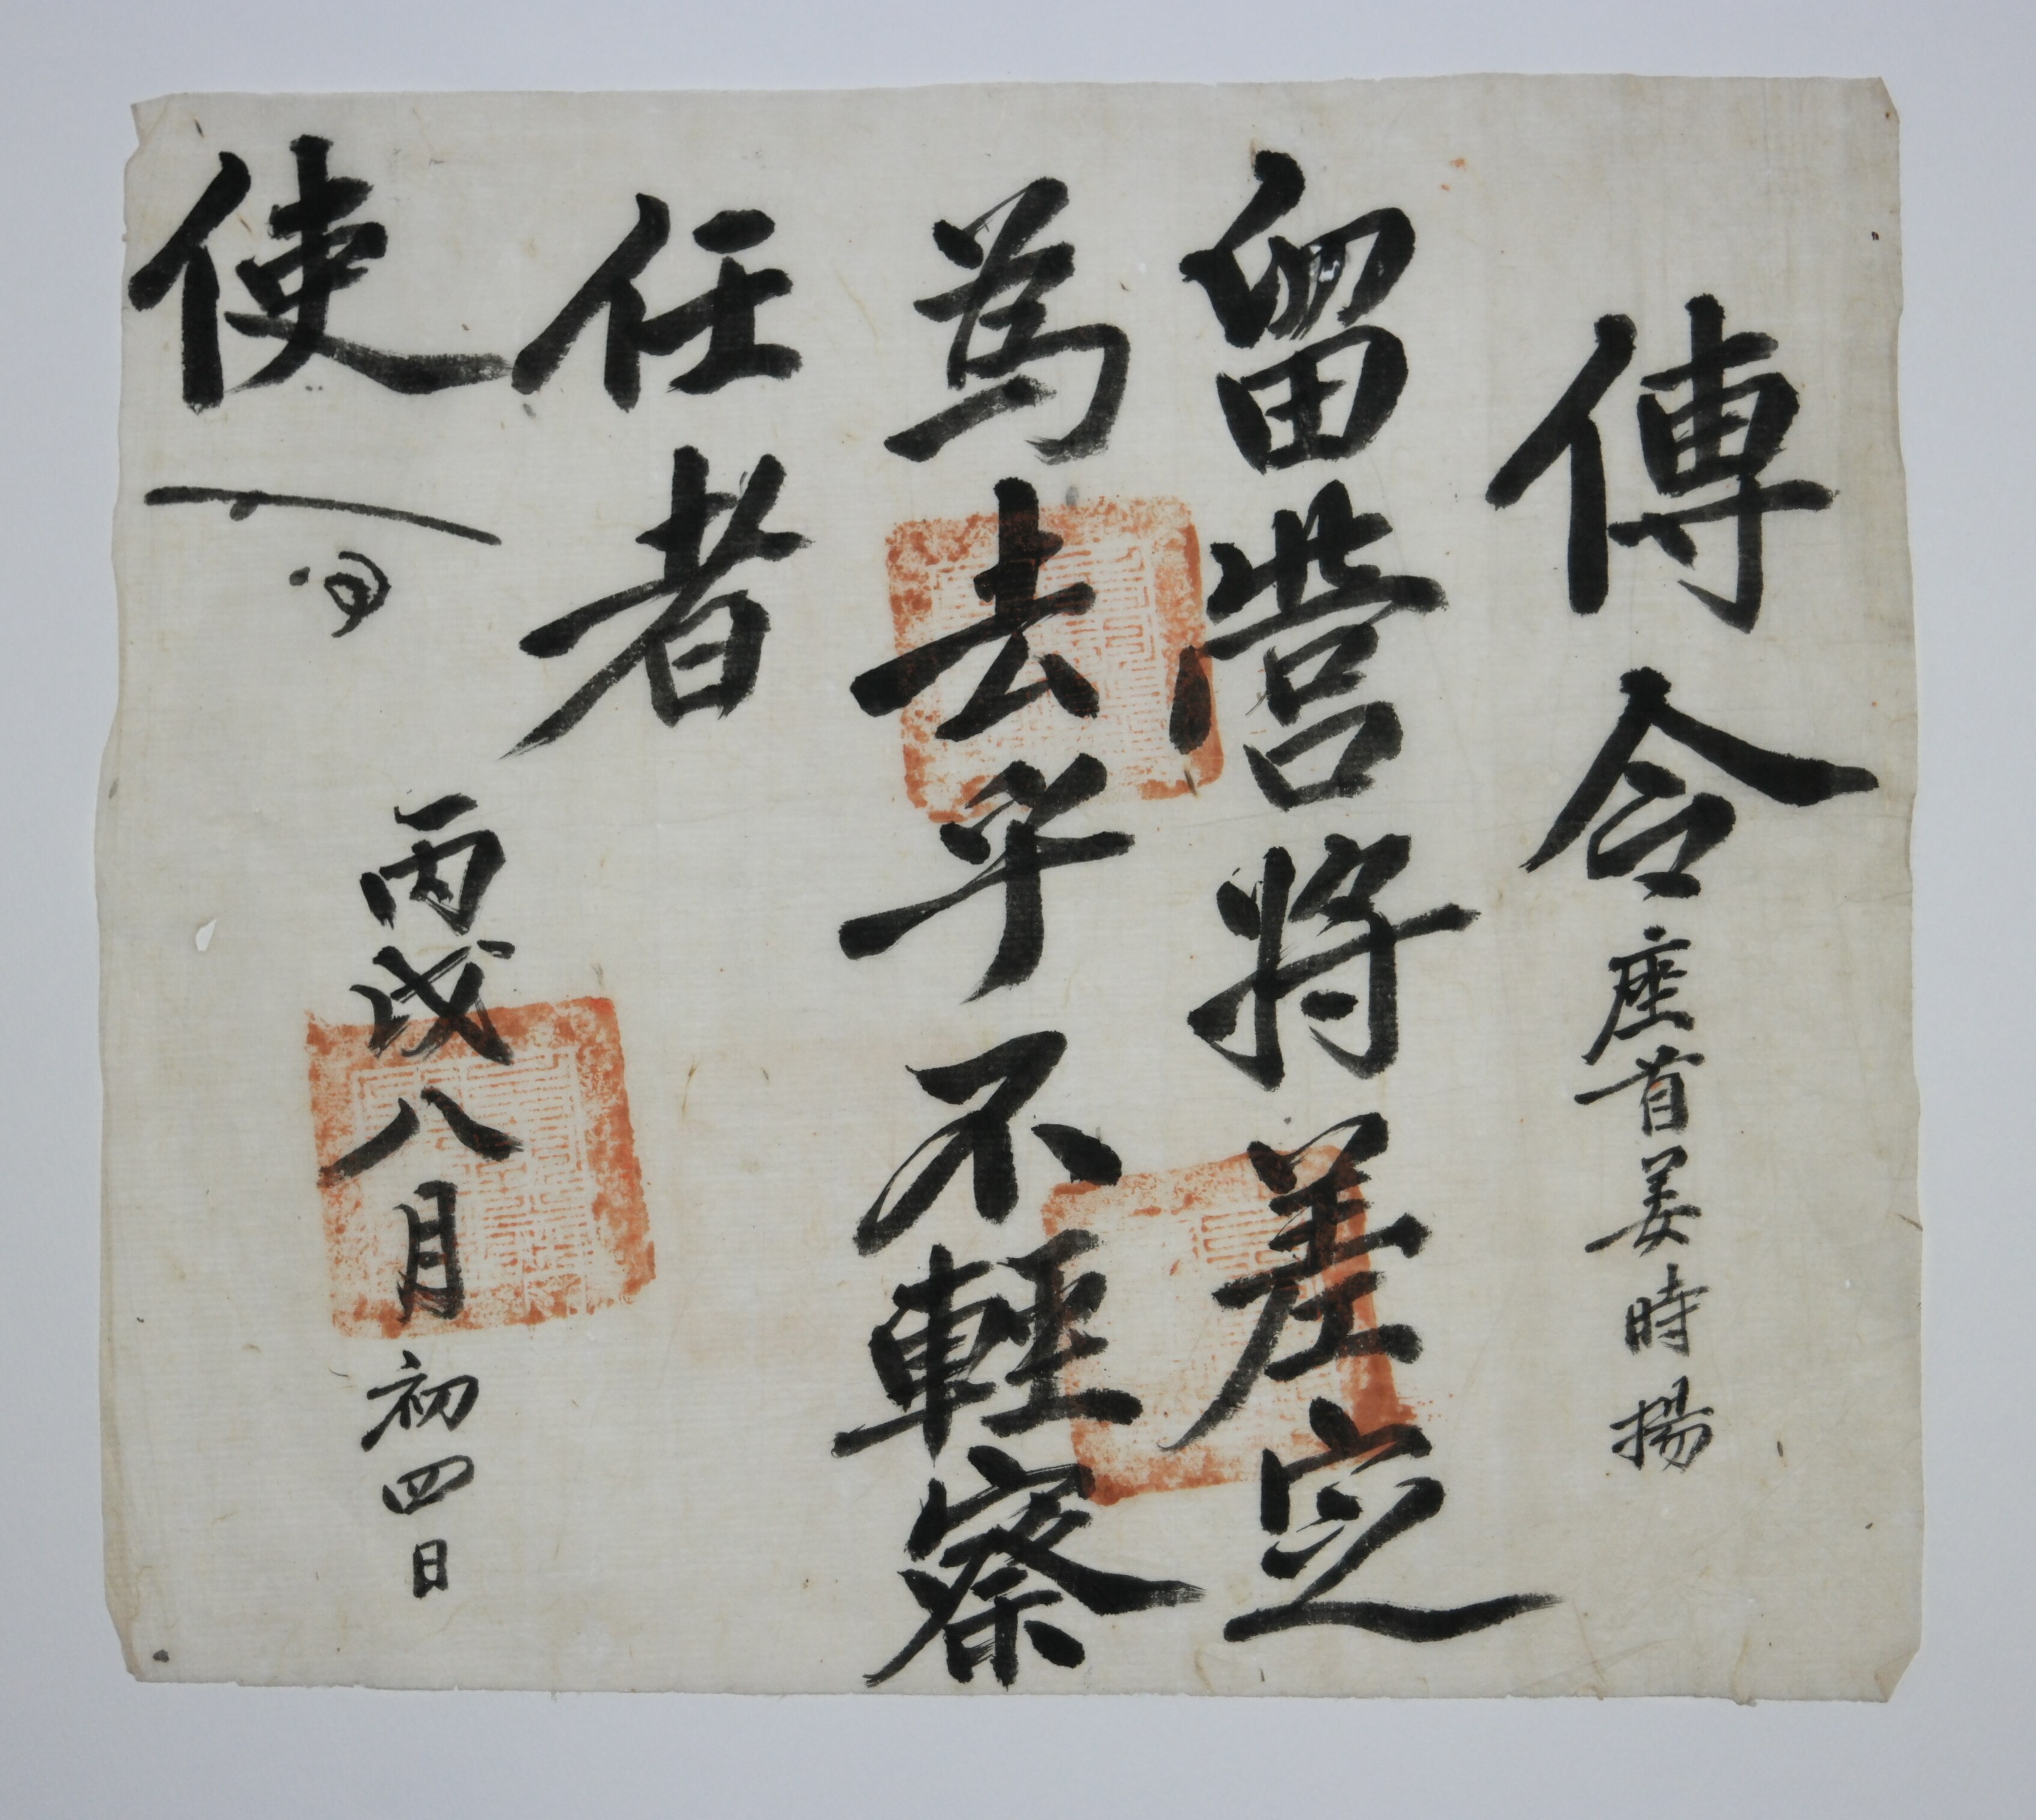 傳令 座首姜時揚
留營將差定
為去乎不輕察
任者
丙戌八月初四日
使